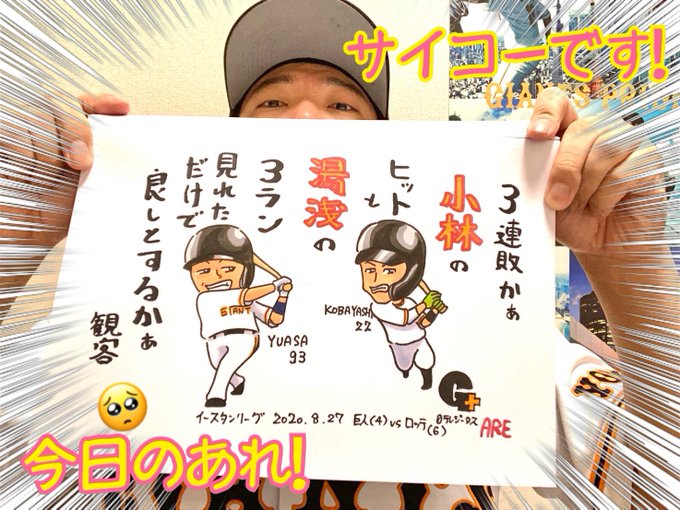 サイコーです!
GIANTS
3連敗かぁ
小林の
ヒットと
湯浅の
3ラン
見れた
だけで
良しとするかぁ
観客
GIANT
YUASA
93
KOBAYASHI
22
G+
イースタンリーグ 2020.8.27 巨人(4)vsロッテ(6) 日テレジータス ARE
今日のあれ!